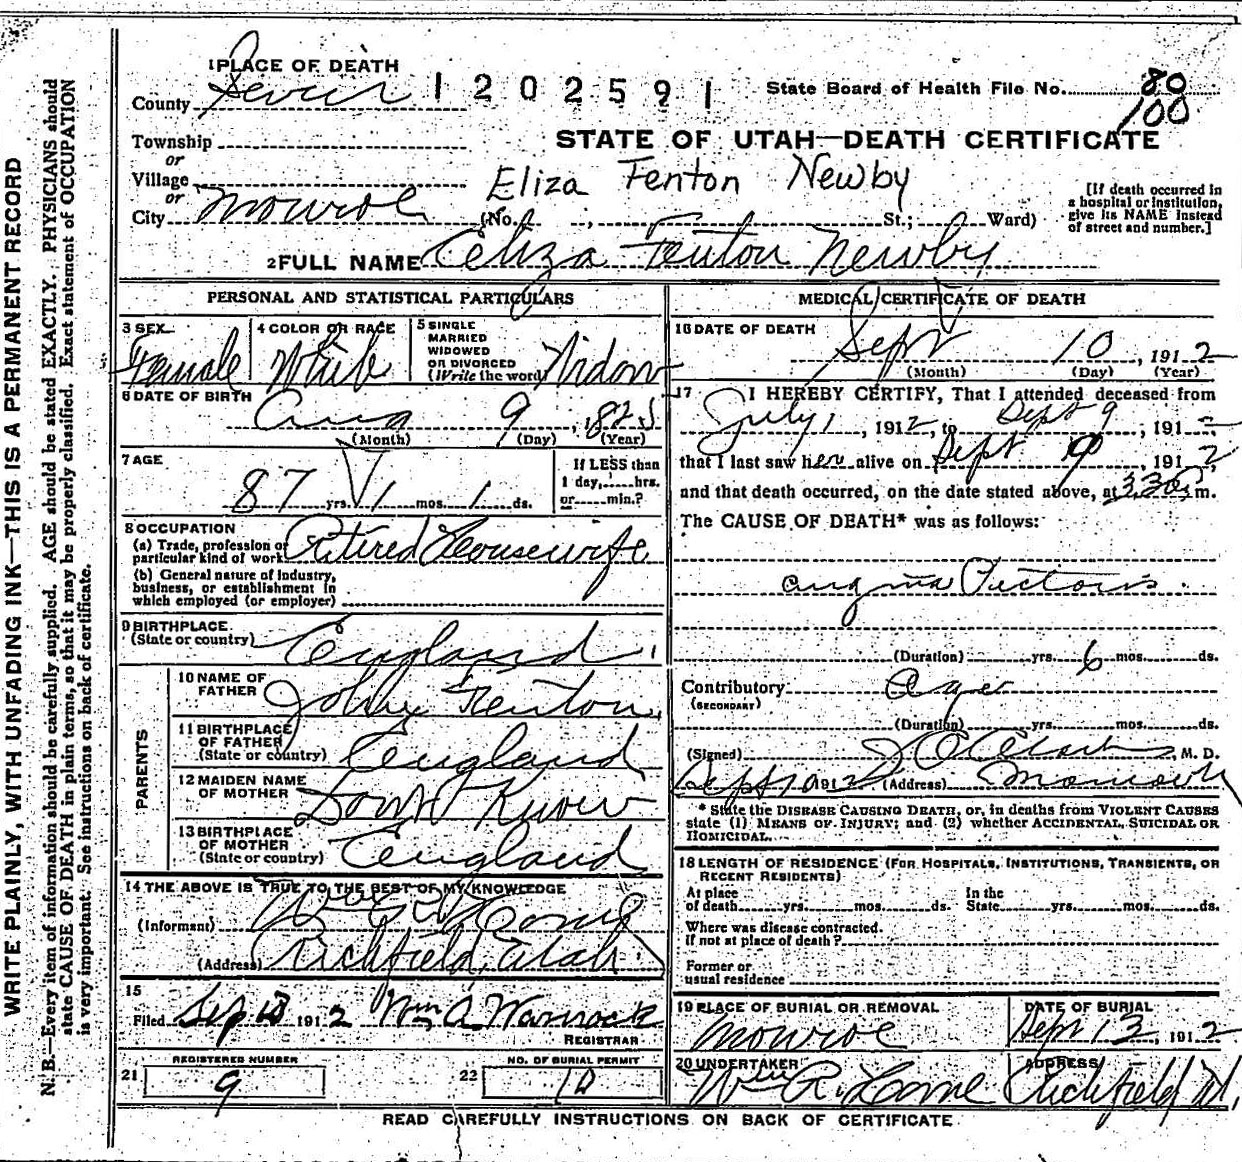 WRITE PLAINLY, WITH UNFADING INK—THIS IS A PERMANENT RECORD
N. B.—Every item of information should be carefully supplied. AGE should be stated EXACTLY. PHYSICIANS should
state CAUSE OF DEATH in plain terms, so that it may be properly classified. Exact statement of OCCUPATION
is very important. See instructions on back of certificate.
1 PLACE OF DEATH
County Sevier 1202591 State Board of Health File No. 80
100
Township
or
STATE OF UTAH—DEATH CERTIFICATE
Village
or
Eliza Fenton Newby
City Monroe (No. , St.; Ward)
[If death occurred in
a hospital or institution,
give its NAME instead
of street and number.]
2 FULL NAME Eliza Fenton Newby
PERSONAL AND STATISTICAL PARTICULARS
3 SEX Female
4 COLOR OR RACE White
5 SINGLE
MARRIED
WIDOWED
OR DIVORCED
(Write the word) Widow
6 DATE OF BIRTH
Aug 9, 1825
(Month) (Day) (Year)
7 AGE
87 yrs. 1 mos. 1 ds.
If LESS than
1 day, hrs.
or min.?
8 OCCUPATION
(a) Trade, profession or
particular kind of work Retired Housewife
(b) General nature of industry,
business, or establishment in
which employed (or employer)
9 BIRTHPLACE
(State or country) England
PARENTS
10 NAME OF
FATHER John Fenton
11 BIRTHPLACE
OF FATHER
(State or country) England
12 MAIDEN NAME
OF MOTHER Dont Know
13 BIRTHPLACE
OF MOTHER
(State or country) England
14 THE ABOVE IS TRUE TO THE BEST OF MY KNOWLEDGE
(Informant) Wm R
(Address) Richfield, Utah
15
Filed Sep 13 1912 Wm A Warnock
REGISTRAR
REGISTERED NUMBER
21 9
NO. OF BURIAL PERMIT
22 10
MEDICAL CERTIFICATE OF DEATH
16 DATE OF DEATH
Sept 10, 1912
(Month) (Day) (Year)
17 I HEREBY CERTIFY, That I attended deceased from
July 1, 1912, to Sept 9, 1912
that I last saw her alive on Sept 9, 1912,
and that death occurred, on the date stated above, at 3.30 m.
The CAUSE OF DEATH* was as follows:
angina Pectoris
(Duration) yrs. 6 mos. ds.
Contributory Age
(SECONDARY)
(Duration) yrs. mos. ds.
(Signed) M. D.
Sept 10 1912 (Address)
* State the DISEASE CAUSING DEATH, or, in deaths from VIOLENT CAUSES
state (1) MEANS OF INJURY; and (2) whether ACCIDENTAL, SUICIDAL OR
HOMICIDAL.
18 LENGTH OF RESIDENCE (FOR HOSPITALS, INSTITUTIONS, TRANSIENTS, OR
RECENT RESIDENTS)
At place
of death yrs. mos. ds.
In the
State yrs. mos. ds.
Where was disease contracted.
If not at place of death?
Former or
usual residence
19 PLACE OF BURIAL OR REMOVAL
Monroe
DATE OF BURIAL
Sept 13, 1912
20 UNDERTAKER
Wm R.
ADDRESS
Richfield
READ CAREFULLY INSTRUCTIONS ON BACK OF CERTIFICATE